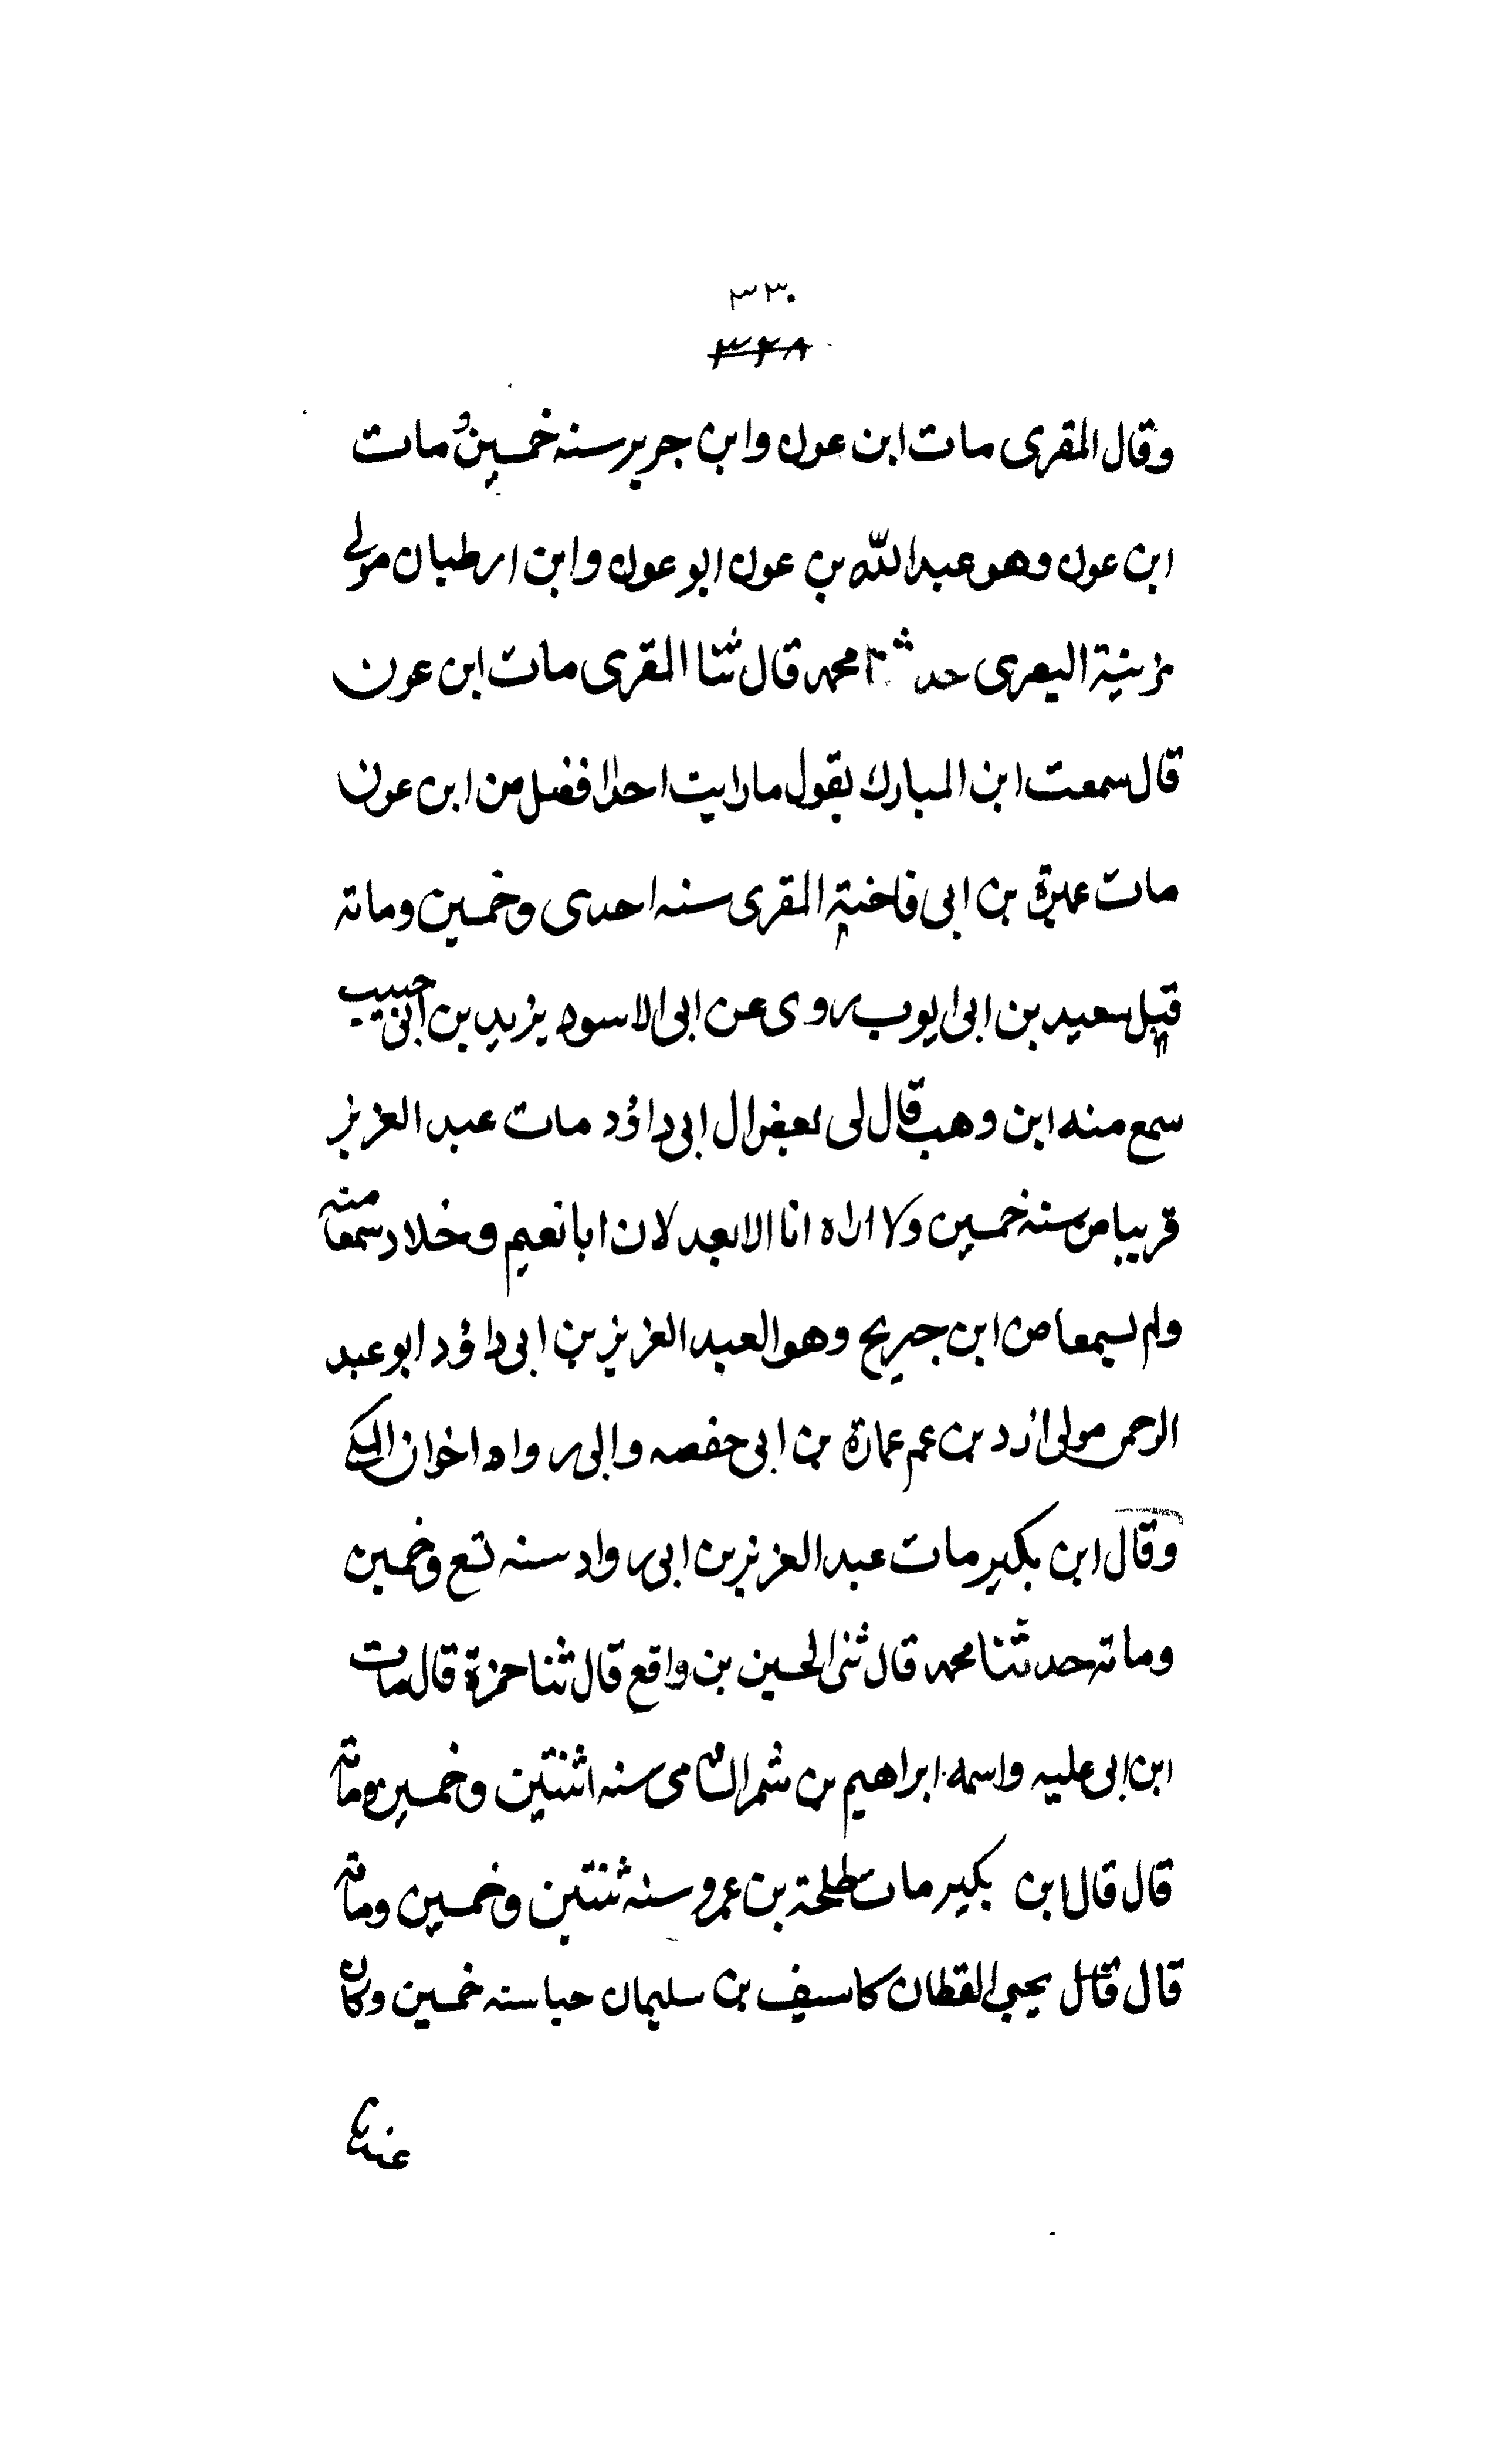 ٣٣٠
٣٢٨
وقال المقرى مات ابن عون وابن جرير سنه خمسين و مات
ابن عون وهو عبد الله بن عون ابو عون وابن ارطبان مولى
مزينة البصرى حدثنا محمد قال ثنا المقرى مات ابن عون
قال سمعت ابن المبارك يقول ما رايت احدا افضل من ابن عون
مات بن ابى فاختة المقرى سنه احدى وخمسين ومائة
قبل سعيد بن ابى ايوب روى عن ابى الاسود يزيد بن ابى حبيب
سمع منه ابن وهب قال لى بعض ال ابى داؤد مات عبد العزيز
قريبا من سنه خمسين ولا اراه انا الا بعد لان ابا نعيم و خلاد سمعا منه
ولم يسمعا من ابن جريج وهو العبد العزيز بن ابى داؤد ابو عبد
الرحمن مولى ازد بن عم عمارة بن ابى حفصه والى رواد اخوان المكى
وقال ابن بكير مات عبد العزيز بن ابى رواد سنه تسع وخمسين
ومائة حدثنا محمد قال ثنى الحسين بن واقع قال ثنا حمزة قال مات
ابن ابى عليه واسمه ابراهيم بن شمر الشامى سنه اثنتين وخمسين ومائة
قال قال ابن بكير مات طلحة بن عمرو سنه ثنتين وخمسين ومائة
قال قال يحيى القطان كا سيف بن سليمان حيا سنه خمسين وكان